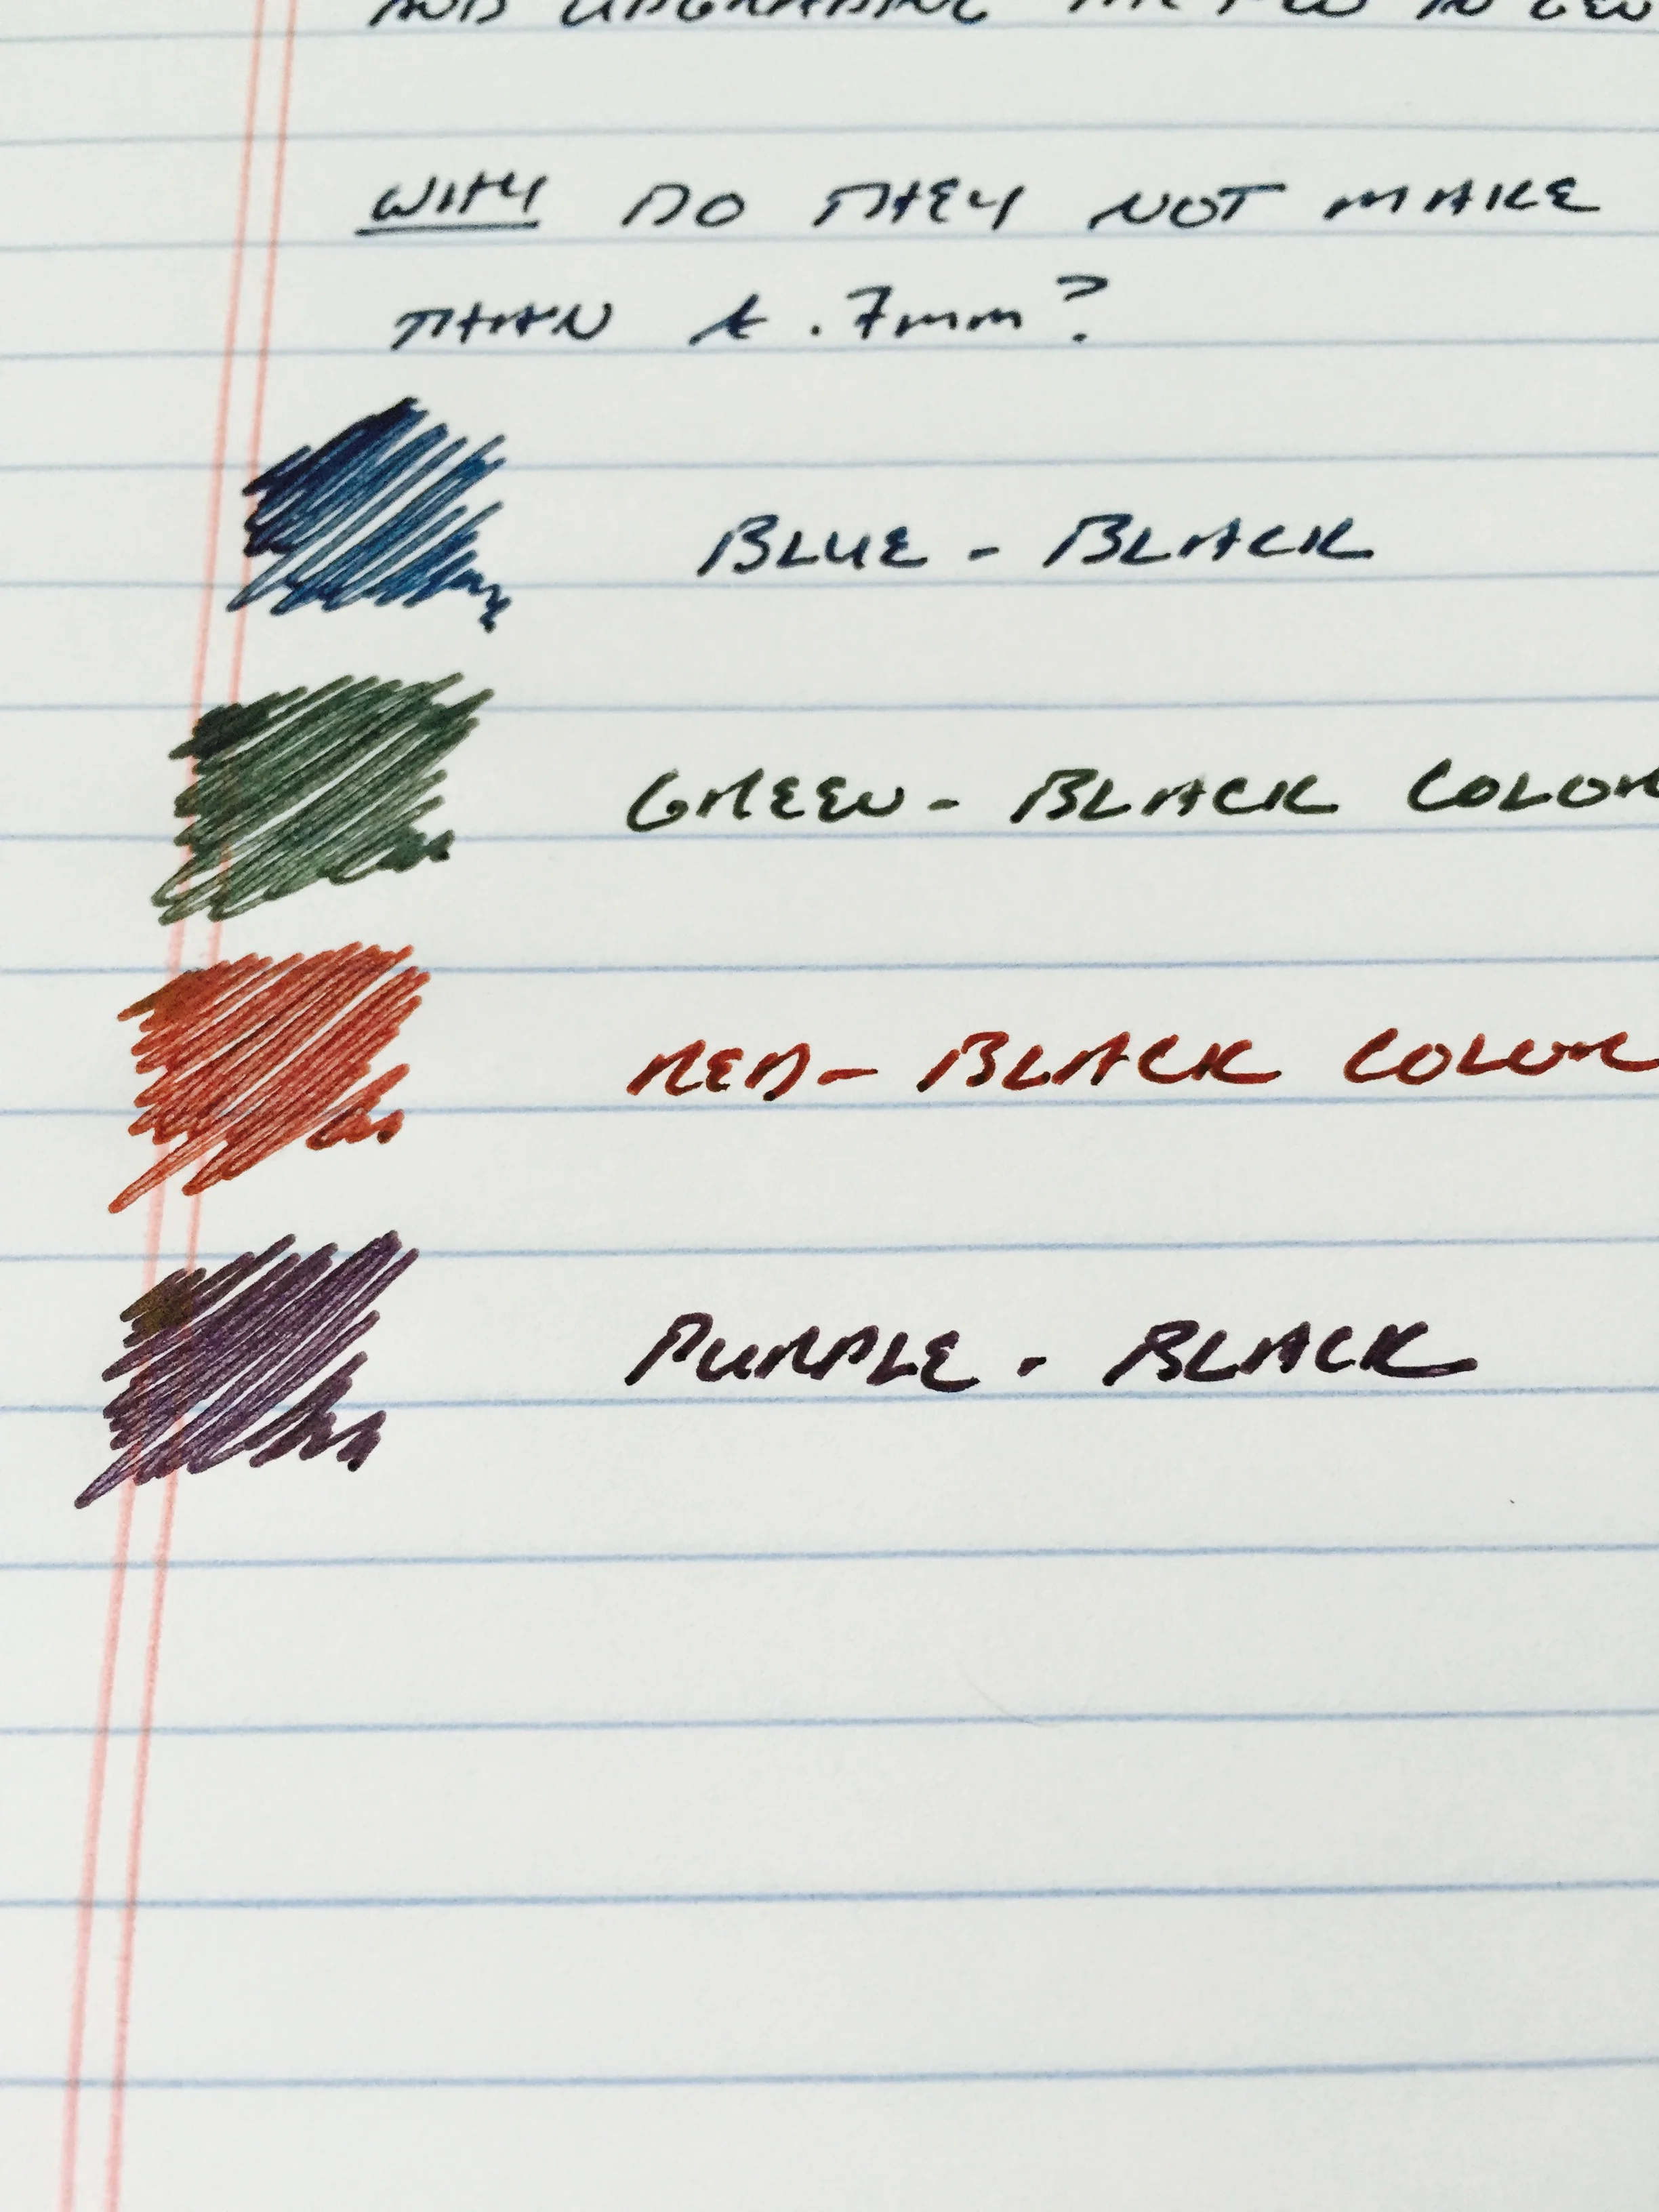 AND UPGRADING THE
WHY DO THEY NOT MAKE
THAN A .7mm?
BLUE - BLACK
GREEN - BLACK COLOR
RED - BLACK COLOR
PURPLE - BLACK